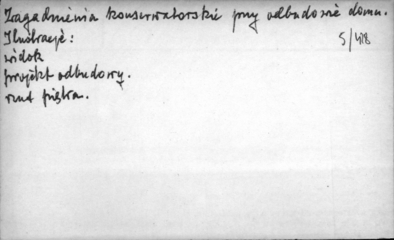 Zagadnienia konserwatorskie przy odbudowie domu.
Ilustracje:
5/418
widok
projekt odbudowy.
rzut piętra.